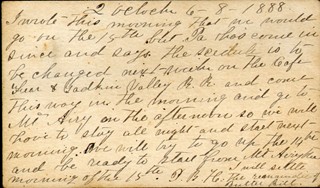 2 oclock 6-8-1888.
I wrote this morning that we would
go on the 15th but Pa has come in
since and says the schedule is to
be changed next week on the Cape
Fear & Yadkin Valley R.R. and come
this way in the morning and go to
Mt. Airy in the afternoon so we will
have to stay all night and start next
morning. We will try to go up the 14th
and be ready to start from Mt Airy the
morning of the 15th